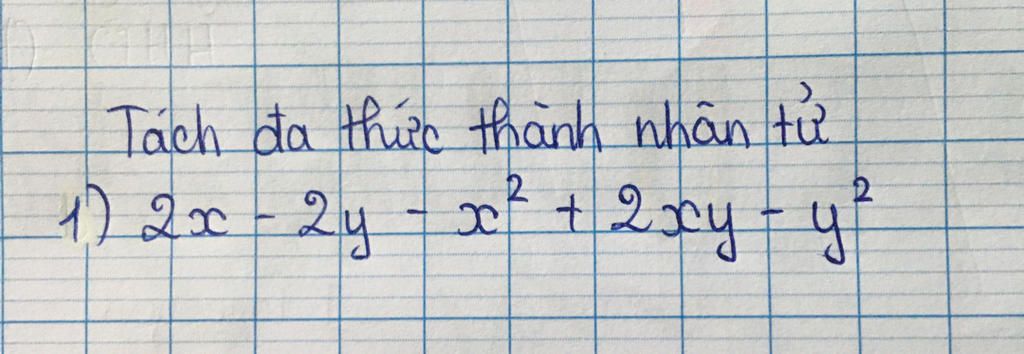 Tách đa thức thành nhân tử
1) 2x - 2y - x² + 2xy - y²